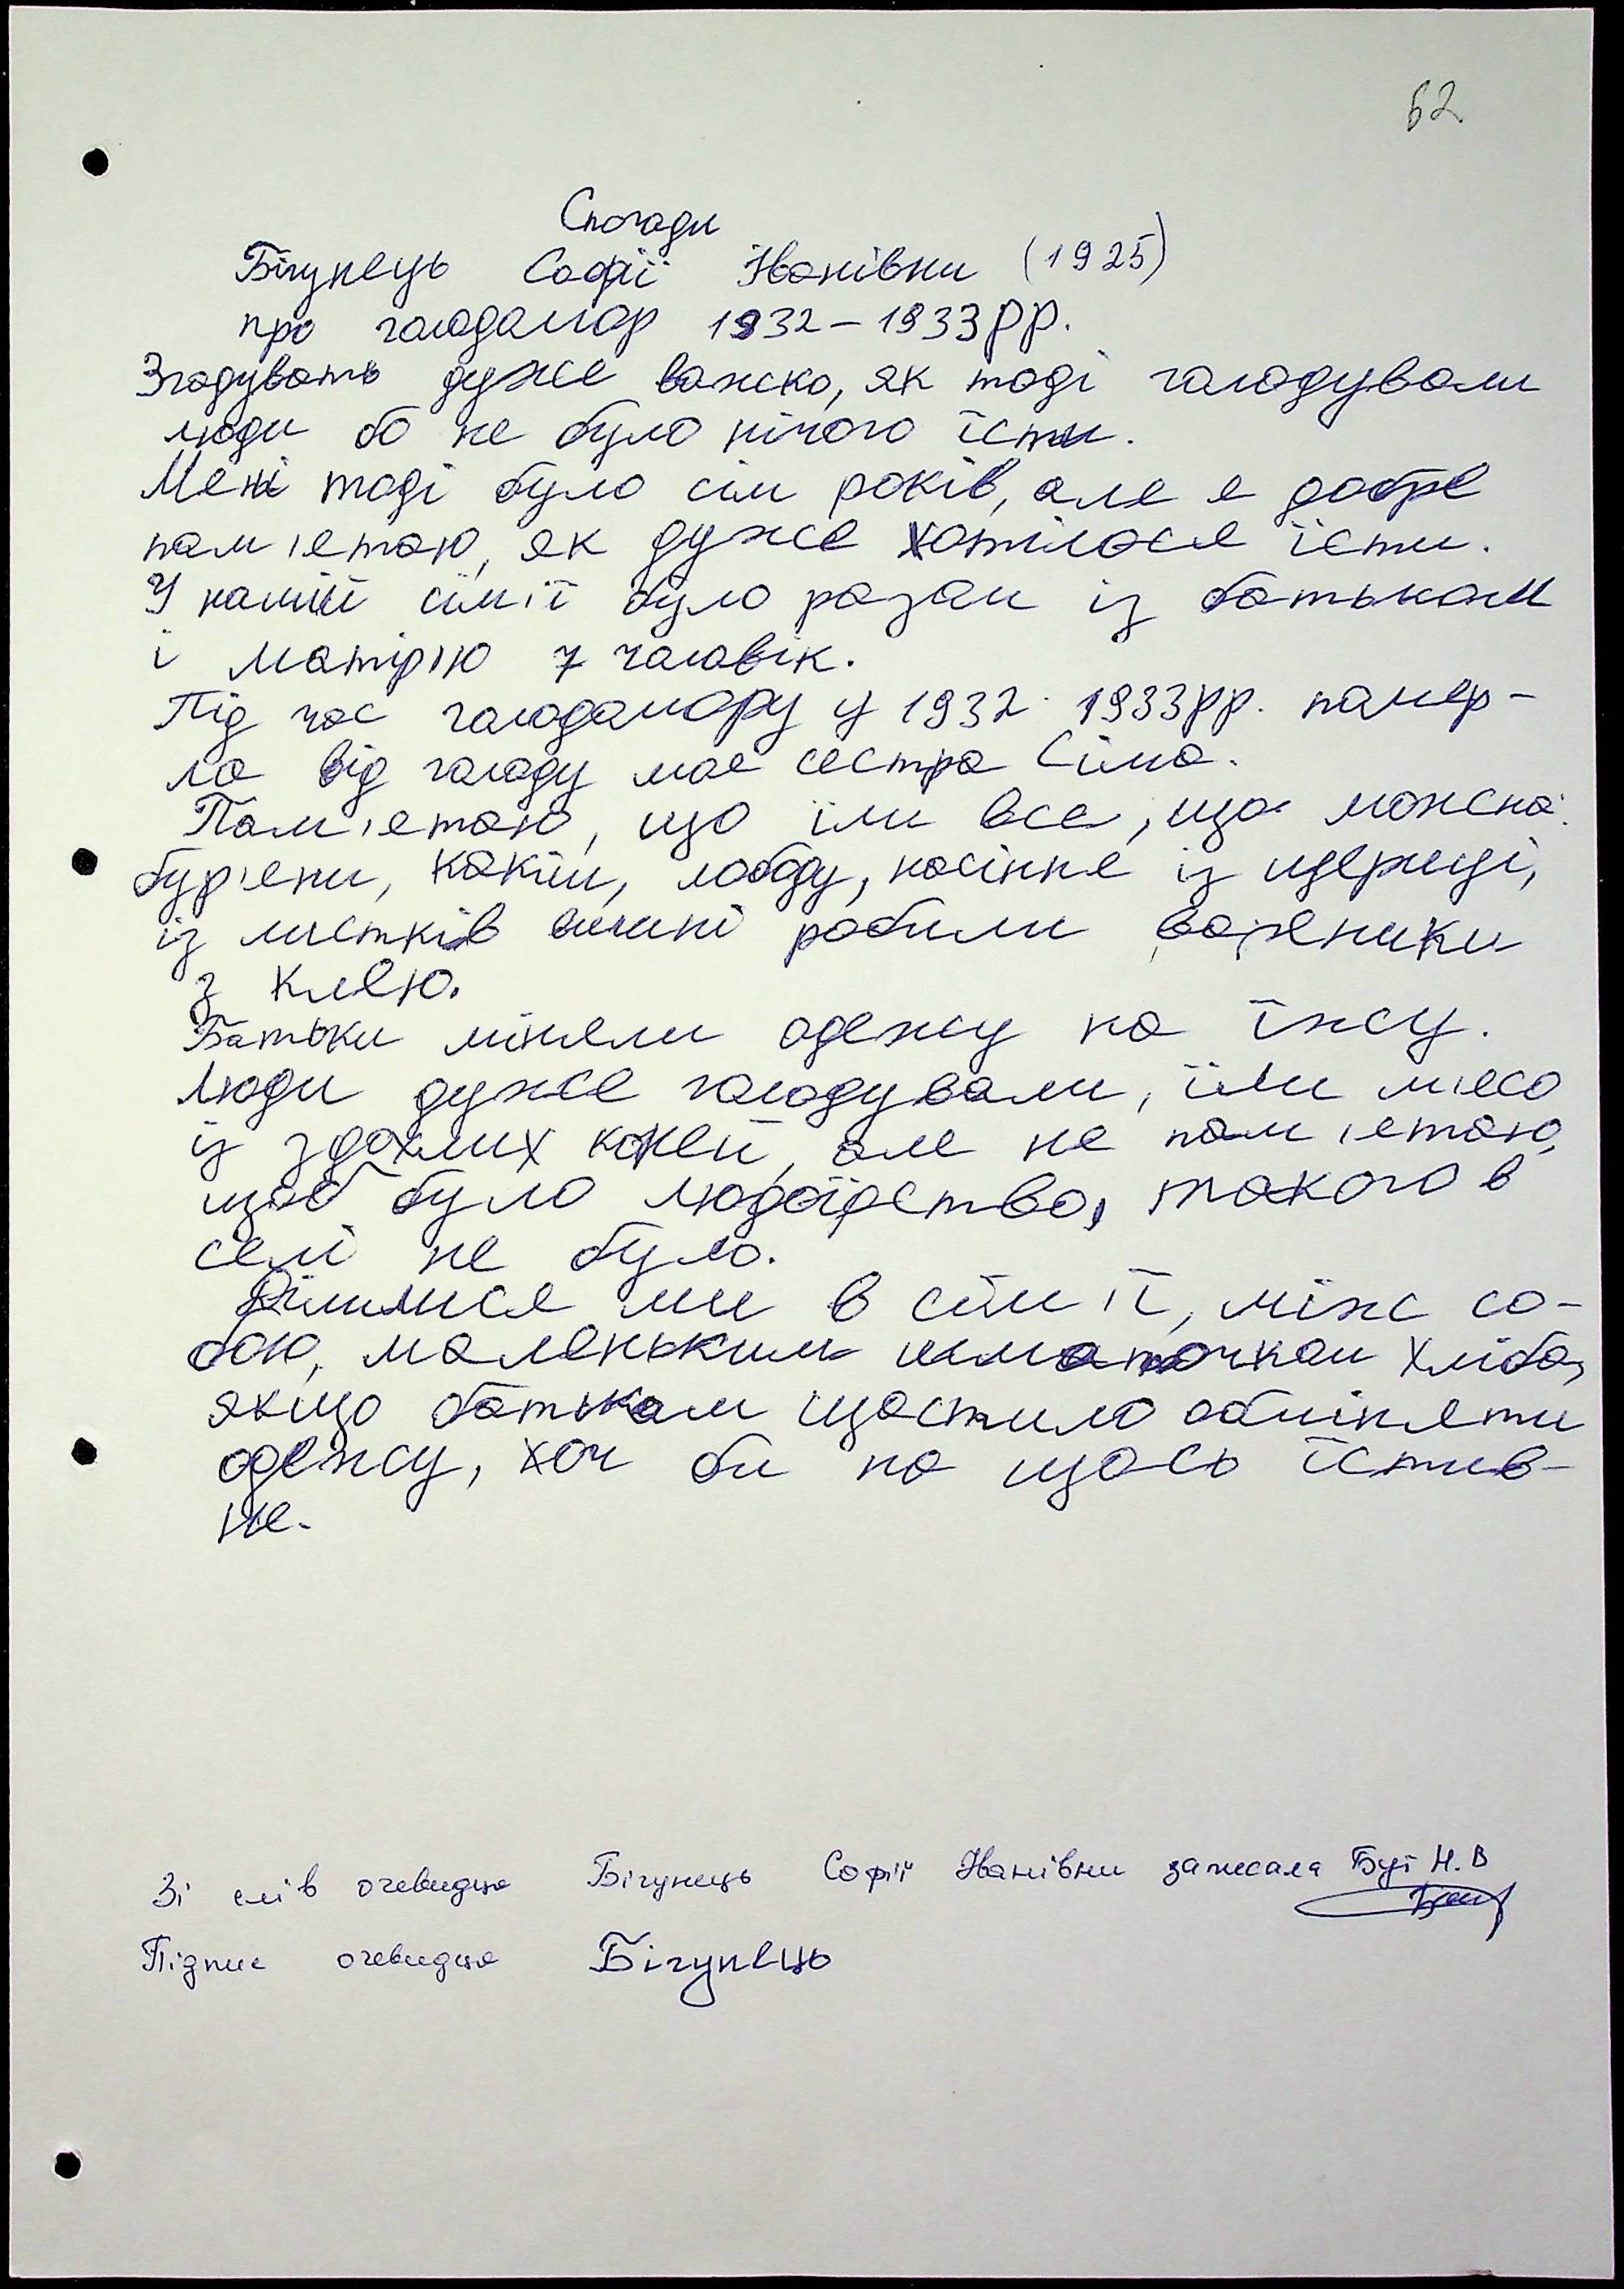 62
Спогади
Бігунець Софії Іванівни (1925)
про голодомор 1932-1933 рр.
Згадувать дуже важко, як тоді голодували
люди бо не було нічого їсти.
Мені тоді було сім років, але я добре
пам'ятаю, як дуже хотілося їсти.
У нашій сім'ї було разом із батьком
і матір'ю 7 чоловік.
Під час голодомору у 1932 1933 рр. помер-
ла від голоду моя сестра Сіма.
Пам'ятаю, що їли все, що можна:
бур'яни, лободу, насіння із щериці,
із листків робили вареники
з клею.
Батьки міняли одежу на їжу.
Люди дуже голодували, їли м'ясо
із здохлих коней, але не пам'ятаю,
щоб було людоїдство, такого в
селі не було.
Ділилися ми в сім'ї, між со-
бою, маленьким шматочком хліба,
якщо батькам щастило обміняти
одежу, хоч би на щось їстив-
не.
Зі слів очевидця Бігунець Софії Іванівни записала Буї Н. В
Підпис очевидця Бігунець